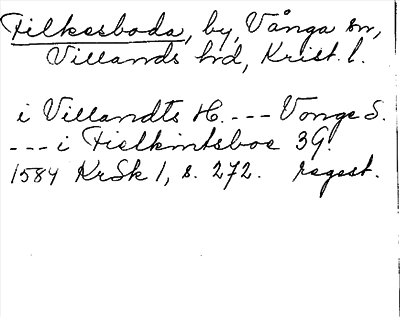 Filkesboda, by, Vånga sn,
Villands hd, Krist. l.
i Villandts H. --- Vonge S.
--- i Fielkintsboe 3 G.
1584 KrSk 1, s. 272. regest.